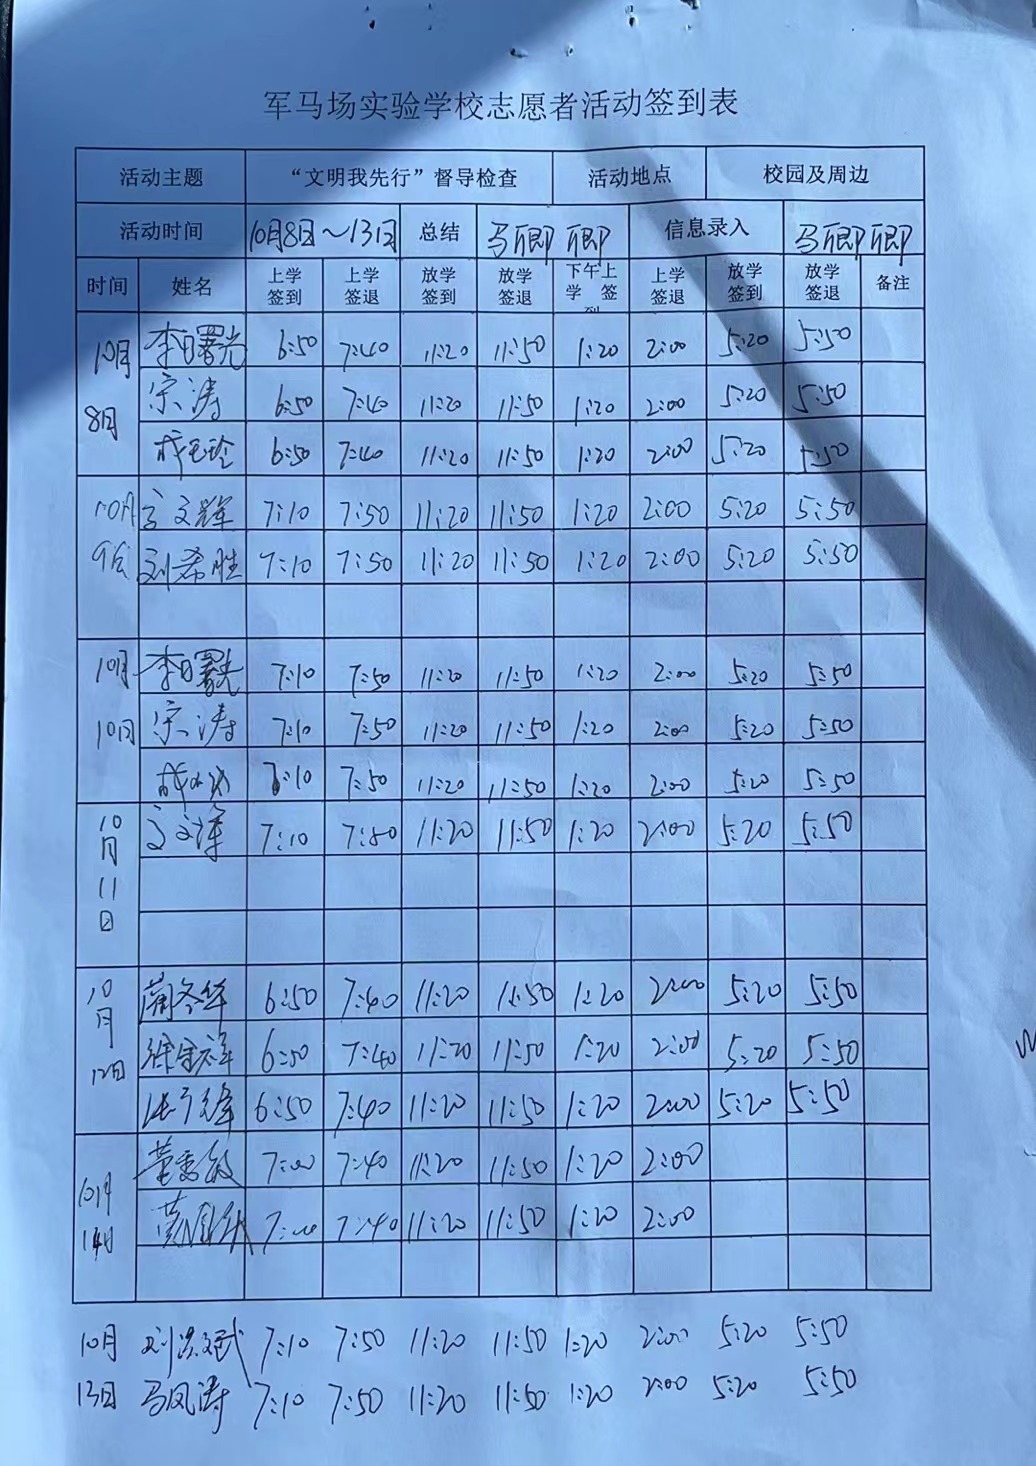 军马场实验学校志愿者活动签到表
活动主题 “文明我先行”督导检查 活动地点 校园及周边
活动时间 10月8日～13日 总结 马卿卿 信息录入 马卿卿
时间 姓名 上学签到 上学签退 放学签到 放学签退 下午上学签到 上学签退 放学签到 放学签退 备注
10月 李曙光 6:50 7:40 11:20 11:50 1:20 2:00 5:20 5:50
宗涛 6:50 7:40 11:20 11:50 1:20 2:00 5:20 5:50
8日 6:50 7:40 11:20 11:50 1:20 2:00 5:20 5:50
10月 文辉 7:10 7:50 11:20 11:50 1:20 2:00 5:20 5:50
9日 刘希胜 7:10 7:50 11:20 11:50 1:20 2:00 5:20 5:50
10月 李曙光 7:10 7:50 11:20 11:50 1:20 2:00 5:20 5:50
10日 宗涛 7:10 7:50 11:20 11:50 1:20 2:00 5:20 5:50
7:10 7:50 11:20 11:50 1:20 2:00 5:20 5:50
10月11日 7:10 7:50 11:20 11:50 1:20 2:00 5:20 5:50
10月 蔺冬华 6:50 7:40 11:20 11:50 1:20 2:00 5:20 5:50
6:50 7:40 11:20 11:50 1:20 2:00 5:20 5:50
12日 6:50 7:40 11:20 11:50 1:20 2:00 5:20 5:50
10月 7:00 7:40 11:20 11:50 1:20 2:00
14日 7:00 7:40 11:20 11:50 1:20 2:00
10月 刘洪斌 7:10 7:50 11:20 11:50 1:20 2:00 5:20 5:50
13日 马凤涛 7:10 7:50 11:20 11:50 1:20 2:00 5:20 5:50